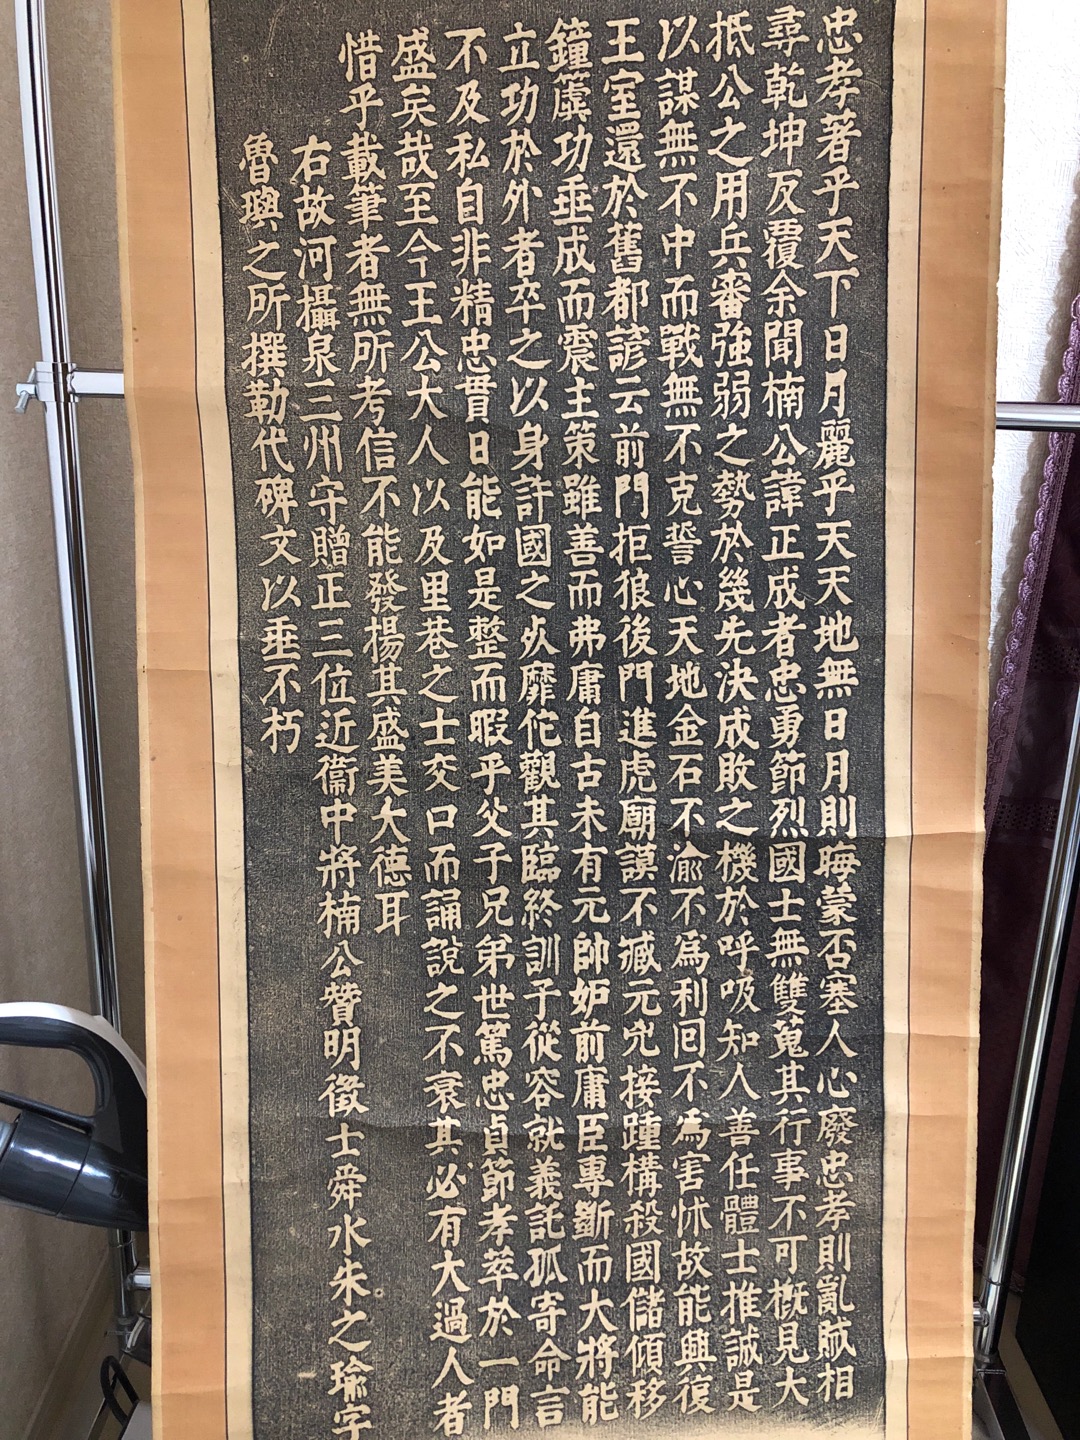 忠孝著乎天下日月麗乎天天地無日月則晦蒙否塞人心廢忠孝則亂賊相
尋乾坤反覆余聞楠公諱正成者忠勇節烈國士無雙蒐其行事不可概見大
抵公之用兵審強弱之勢於幾先決成敗之機於呼吸知人善任體士推誠是
以謀無不中而戰無不克誓心天地金石不渝不為利回不為害怵故能興復
王室還於舊都諺云前門拒狼後門進虎廟謨不臧元兇接踵構殺國儲傾移
鐘簴功垂成而震主策雖善而弗庸自古未有元帥妒前庸臣專斷而大將能
立功於外者卒之以身許國之死靡佗觀其臨終訓子從容就義託孤寄命言
不及私自非精忠貫日能如是整而暇乎父子兄弟世篤忠貞節孝萃於一門
盛矣哉至今王公大人以及里巷之士交口而誦說之不衰其必有大過人者
惜乎載筆者無所考信不能發揚其盛美大德耳
右故河攝泉三州守贈正三位近衞中將楠公贊明徵士舜水朱之瑜字
魯璵之所撰勒代碑文以垂不朽